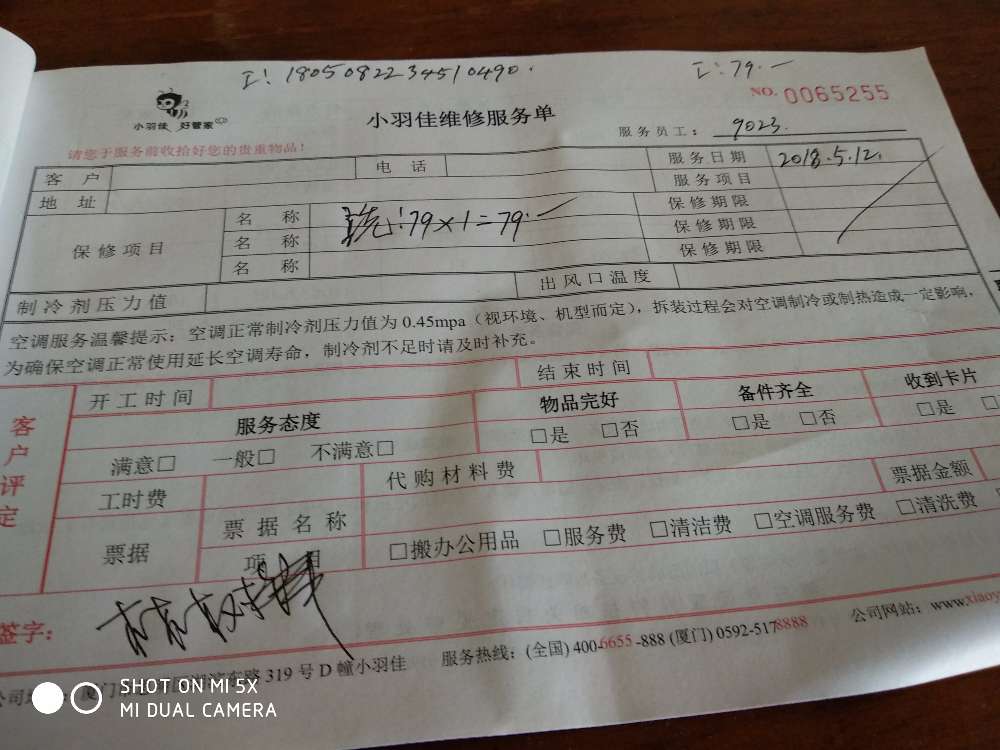 工:180508223451049０.
工:79.一
NO. 0065255
小羽佳 好管家
小羽佳维修服务单
服务员工: 9023.
请您于服务前收拾好您的贵重物品!
客 户
电 话
服务日期 2018.5.12.
地 址
服务项目
保修项目
名 称
保修期限
名 称
:79×1=79.一
保修期限
名 称
保修期限
制冷剂压力值
出风口温度
空调服务温馨提示:空调正常制冷剂压力值为 0.45mpa(视环境、机型而定),拆装过程会对空调制冷或制热造成一定影响,
为确保空调正常使用延长空调寿命,制冷剂不足时请及时补充。
客户评定
开工时间
结束时间
服务态度
物品完好
备件齐全
收到卡片
满意□ 一般□ 不满意□
□是 □否
□是 □否
□是 □
工时费
代购材料费
票据
票据名称
票据金额
项 目
□搬办公用品 □服务费 □清洁费 □空调服务费 □清洗费
签字:
东路 319 号 D 幢小羽佳
服务热线:(全国) 400-6655-888 (厦门) 0592-5178888
公司网站:www.xiaoy
SHOT ON MI 5X
MI DUAL CAMERA